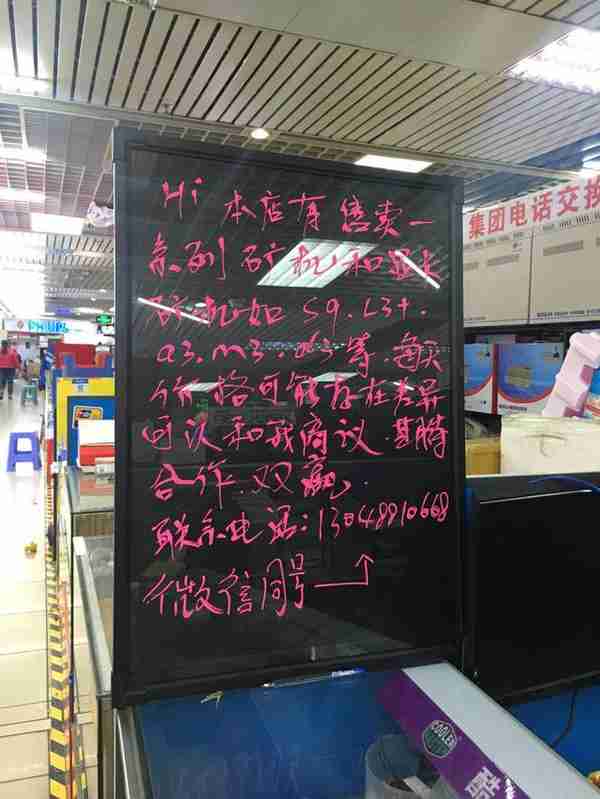 Hi 本店有售卖一
系列矿机和显卡
矿机如 S9.L3+.
a3.m3.d3等.每天
价格可能存在差异
可以和我商议.期待
合作.双赢.
联系电话:13048910668
微信同号
集团电话交换
PHILIPS
COOLER
酷